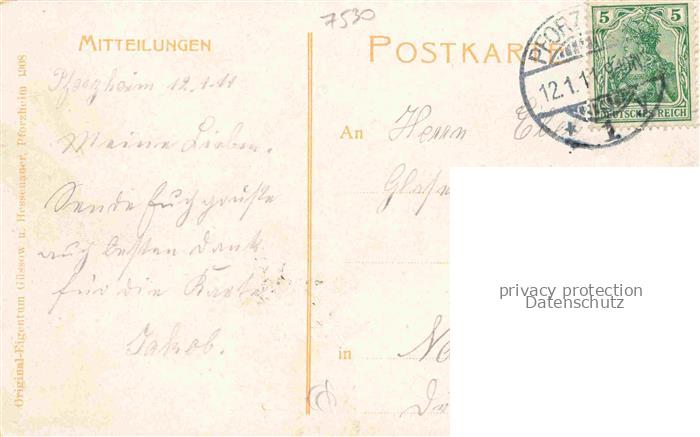 7530
MITTEILUNGEN
POSTKARTE
PFORZ
12.1.11
5 5
DEUTSCHES REICH
Pforzheim 12.1.11
Meine Lieben.
Sende Euch Grüße
auch besten Dank
für die Karte
Jakob.
An Herrn
in
Original-Eigentum Güssow u. Hessenauer, Pforzheim 1908
privacy protection
Datenschutz